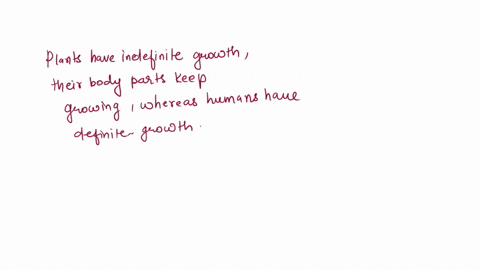 Plants have indefinite growth,
their body parts keep
growing, whereas humans have
definite growth.